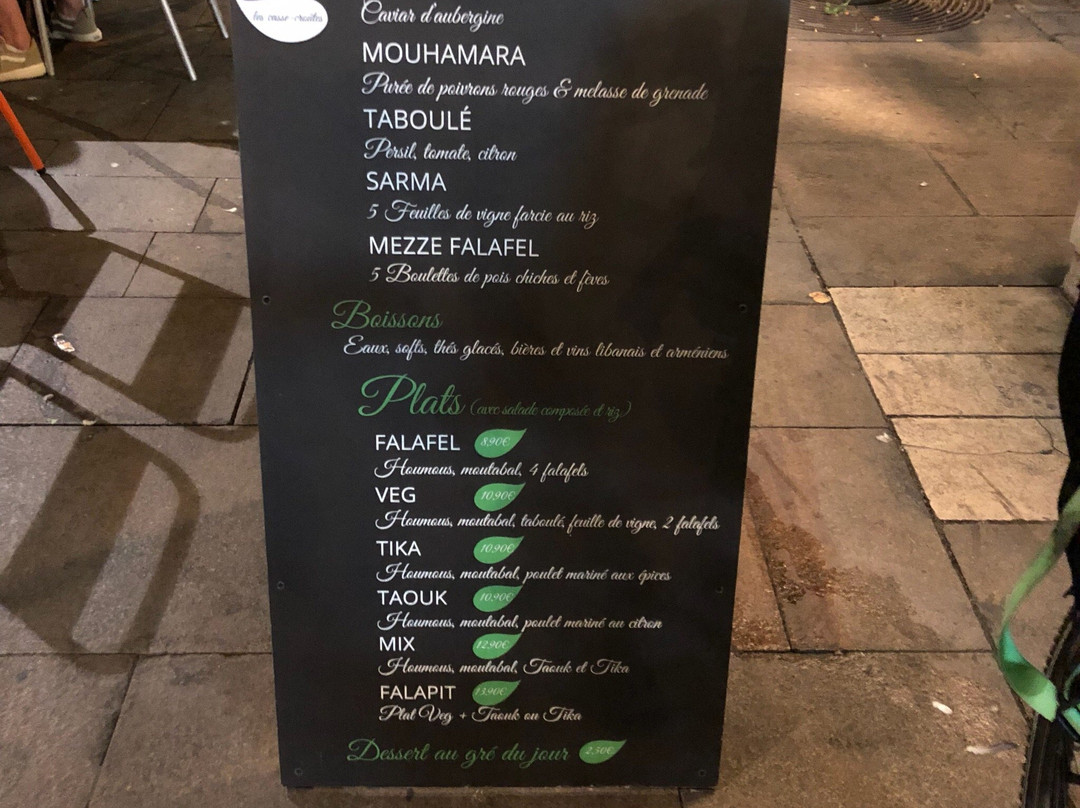 les casse-croûtes
Caviar d'aubergine
MOUHAMARA
Purée de poivrons rouges & melasse de grenade
TABOULÉ
Persil, tomate, citron
SARMA
5 Feuilles de vigne farcie au riz
MEZZE FALAFEL
5 Boulettes de pois chiches et fèves
Boissons
Eaux, softs, thés glacés, bières et vins libanais et arméniens
Plats (avec salade composée et riz)
FALAFEL 8,90€
Houmous, moutabal, 4 falafels
VEG 10,90€
Houmous, moutabal, taboulé, feuille de vigne, 2 falafels
TIKA 10,90€
Houmous, moutabal, poulet mariné aux épices
TAOUK 10,90€
Houmous, moutabal, poulet mariné au citron
MIX 12,90€
Houmous, moutabal, Taouk et Tika
FALAPIT 13,90€
Plat Veg + Taouk ou Tika
Dessert au gré du jour 2,50€